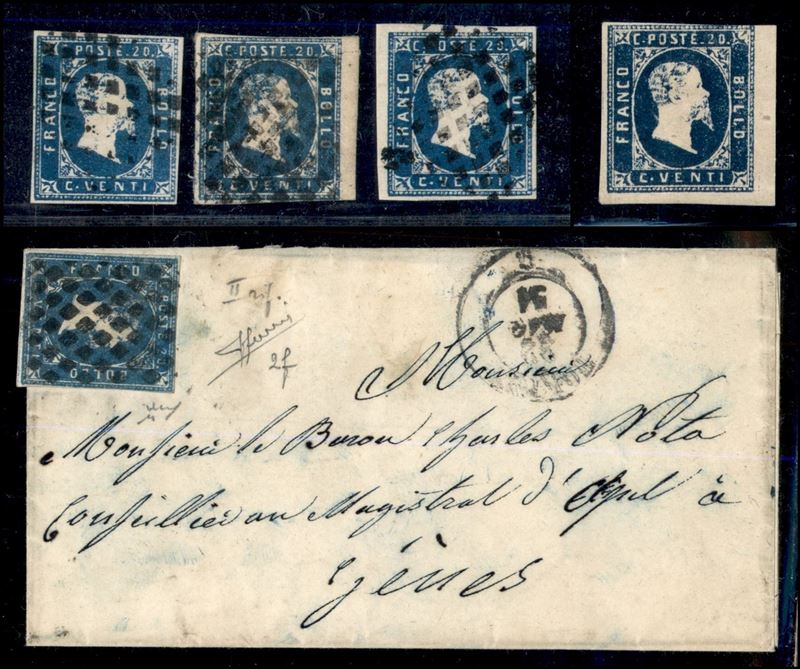 C. POSTE. 20.
FRANCO
BOLLO
C. VENTI
C. POSTE. 20.
FRANCO
BOLLO
C. VENTI
C. POSTE. 20.
FRANCO
BOLLO
C. VENTI
C. POSTE. 20.
FRANCO
BOLLO
C. VENTI
FRANCO
C. POSTE. 20.
BOLLO
II
2f
Monsieur
Monsieur le Baron Charles Nota
Conseillier au Magistrat d' à
Gênes